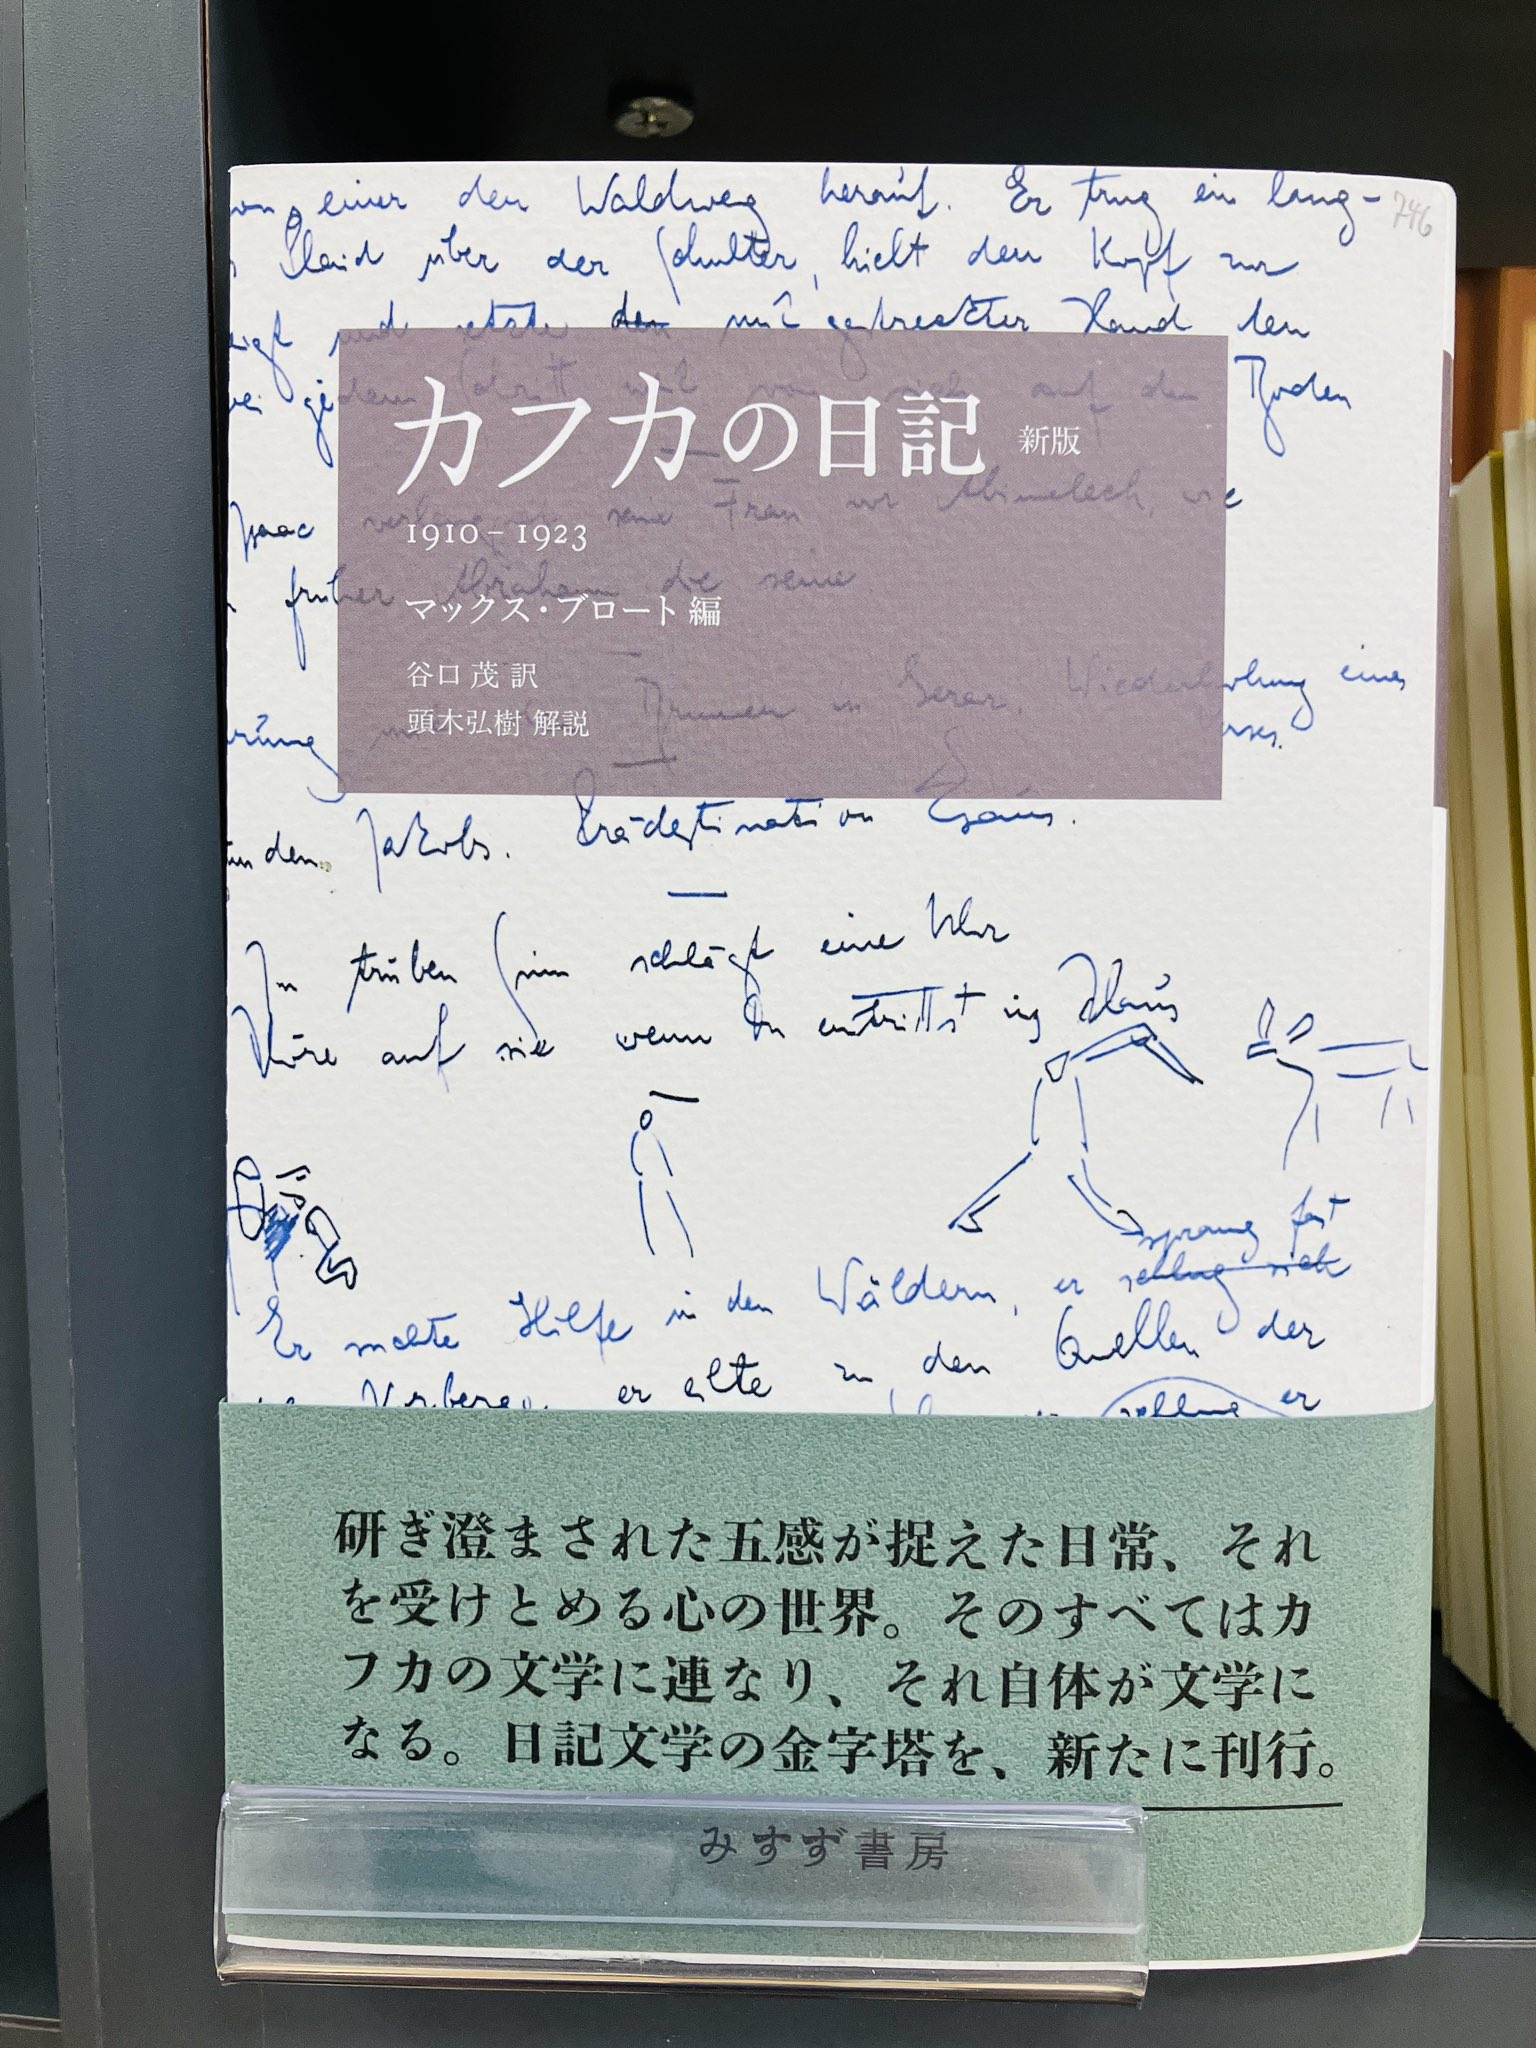 einer den Waldweg herauf. Er trug ein lang-
746
Plaid über der Schulter, hielt den Kopf vor
und setzte den mit gestreckter Hand den
jedem Schritt weit von sich auf den Boden
カフカの日記 新版
Isaac seine Frau vor Abimelech, wie
1910–1923
früher Abraham die seine
マックス・ブロート 編
谷口 茂 訳
頭木弘樹 解説
Brunnen in Gerar. Wiederholung eines
Verses.
Jakobs. Prädestination Esaus.
In trüben Sinn schlägt eine Uhr
Höre auf sie wenn Du eintrittst ins Haus
sprang fast
Er suchte Hilfe in den Wäldern, er schlug sich
er eilte zu den Quellen der
er
研ぎ澄まされた五感が捉えた日常、それ
を受けとめる心の世界。そのすべてはカ
フカの文学に連なり、それ自体が文学に
なる。日記文学の金字塔を、新たに刊行。
みすず書房